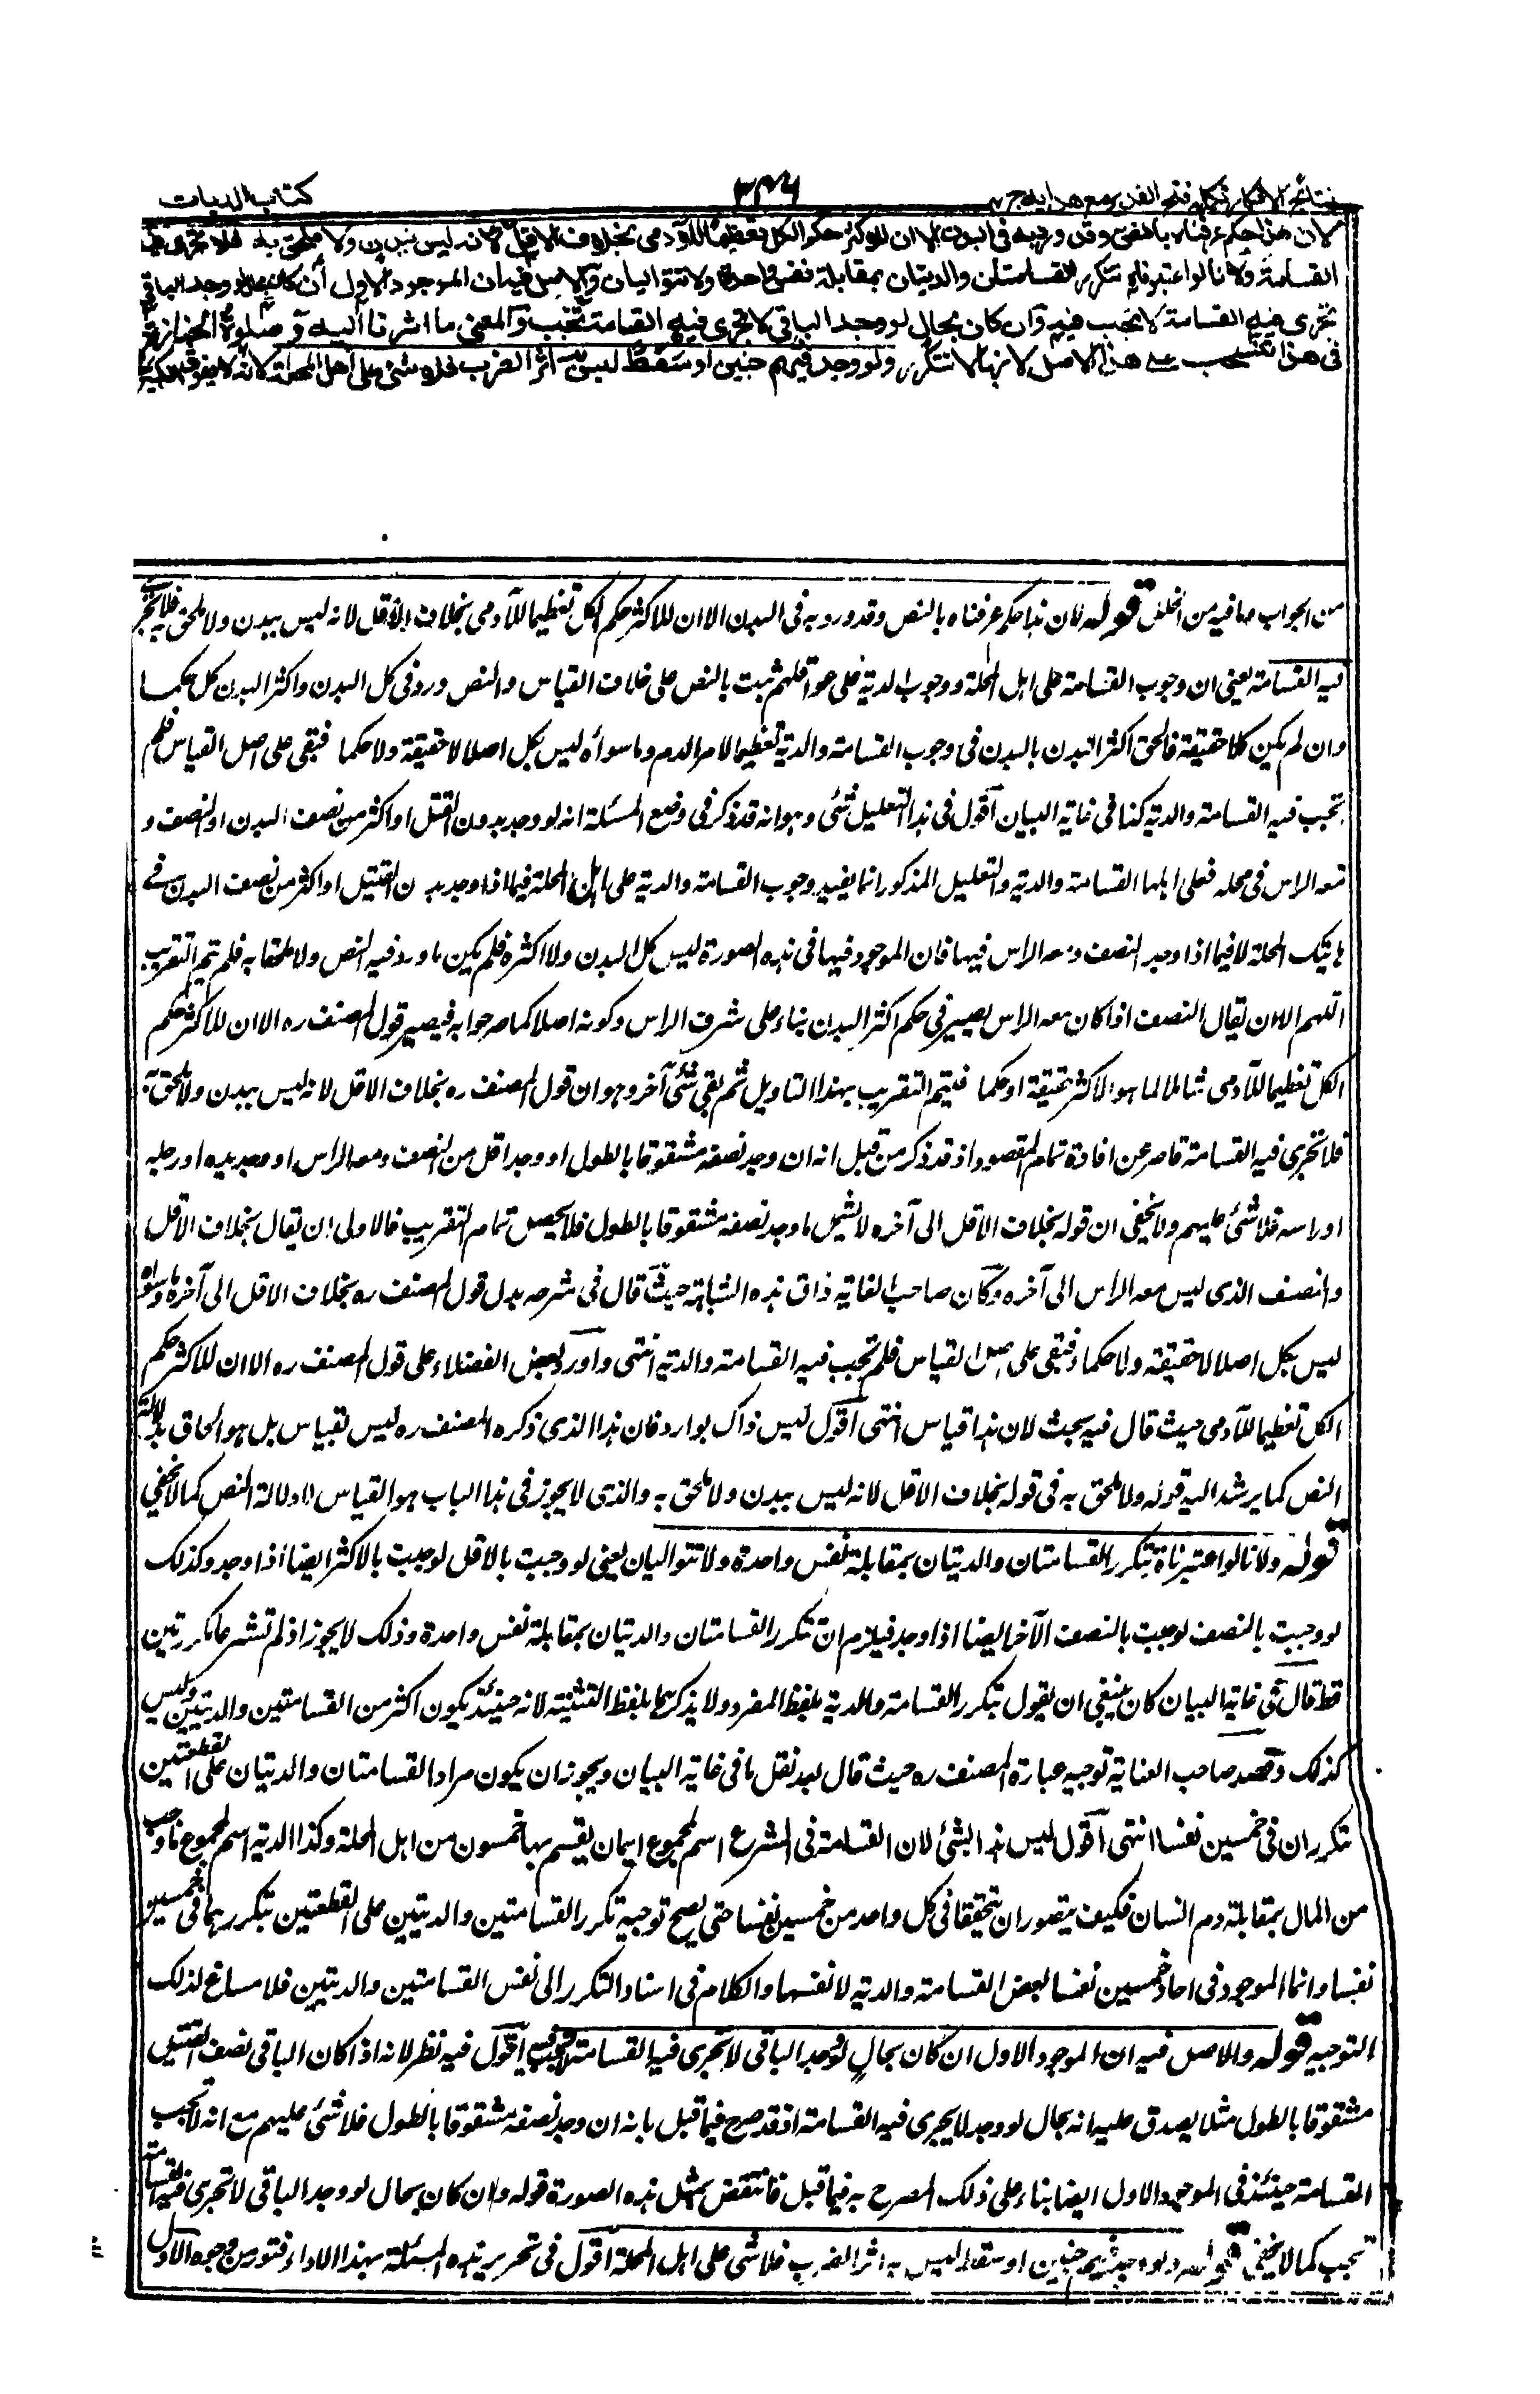 نتائج الافكار تكملہ فتح القدير مع هدايه ج ٣٤٦ كتاب الديات
لان هذا حكم عرفناه بالنص وقد ورد به في البدن الا ان للاكثر حكم الكل تعظيما للآدمى بخلاف الاقل لانه ليس ببدن ولا ملحق به فلا تجرى فيه
القسامة ولانا لو اعتبرناه تتكرر القسامتان والديتان بمقابلة نفس واحدة ولا تتواليان والاصل فيه ان الموجود الاول ان كان بحال لو وجد الباقى
تجرى فيه القسامة لا تجب فيه وان كان بحال لو وجد الباقى لا تجرى فيه القسامة تجب والمعنى ما اشرنا اليه وصلوة الجنازة
فى هذا تنسحب على هذا الاصل لانها لا تتكرر ولو وجد فيهم جنين او سقط ليس به اثر الضرب فلا شئ على اهل المحلة لانه لا يفوق الكبير
من الجواب ما فيه من الخلل قوله لان هذا حكم عرفناه بالنص وقد ورد به فى البدن الا ان للاكثر حكم الكل تعظيما للآدمى بخلاف الاقل لانه ليس ببدن ولا ملحق به فلا تجرى
فيه القسامة يعنى ان وجوب القسامة على اهل المحلة ووجوب الدية على عواقلهم ثبت بالنص على خلاف القياس والنص ورد فى كل البدن واكثر البدن كل حكما
وان لم يكن كلا حقيقة فالحق اكثر البدن بالبدن فى وجوب القسامة والدية تعظيما لامر الدم وما سواه ليس بكل اصلا لا حقيقة ولا حكما فبقى على اصل القياس فلم
تجب فيه القسامة والدية كذا فى غاية البيان اقول فى هذا التعليل شئ وهو انه قد ذكر فى وضع المسئلة انه لو وجد بدن القتيل او اكثر من نصف البدن او النصف و
معه الراس فى محلة فعلى اهلها القسامة والدية والتعليل المذكور انما يفيد وجوب القسامة والدية على اهل المحلة فيما اذا وجد بدن القتيل او اكثر من نصف البدن فى
هاتيك المحلة لا فيما اذا وجد النصف ومعه الراس فيها فان الموجود فيها فى هذه الصورة ليس كل البدن ولا اكثره فلم يكن ما ورد فيه النص ولا ملحقا به فلم يتم التقريب
اللهم الا ان يقال النصف اذا كان معه الراس يصير فى حكم اكثر البدن بناء على شرف الراس وكونه اصلا كما مر جوابه فيصير قول المصنف ره الا ان للاكثر حكم
الكل تعظيما للآدمى شاملا لما هو الاكثر حقيقة او حكما فيتم التقريب بهذا التاويل ثم بقى شئ آخر وهو ان قول المصنف ره بخلاف الاقل لانه ليس ببدن ولا ملحق به
فلا تجرى فيه القسامة قاصر عن افادة تمام المقصود اذ قد ذكر من قبل انه ان وجد نصفه مشقوقا بالطول او وجد اقل من النصف ومعه الراس او وجد يده او رجله
او راسه فلا شئ عليهم ولا يخفى ان قوله بخلاف الاقل الى آخره لا يشمل ما وجد نصفه مشقوقا بالطول فلا يحصل تمام التقريب فالاولى ان يقال بخلاف الاقل
والنصف الذى ليس معه الراس الى آخره وكان صاحب الغاية ذاق هذه الشبهة حيث قال فى شرحه بدل قول المصنف ره بخلاف الاقل الى آخره وما سواه
ليس بكل اصلا لا حقيقة ولا حكما فبقى على اصل القياس فلم تجب فيه القسامة والدية انتهى واورد بعض الفضلاء على قول المصنف ره الا ان للاكثر حكم
الكل تعظيما للآدمى حيث قال فيه بحث لان هذا قياس انتهى اقول ليس ذاك بوارد فان هذا الذى ذكره المصنف ره ليس بقياس بل هو الحاق بدلالة
النص كما يرشد اليه قوله ولا ملحق به فى قوله بخلاف الاقل لانه ليس ببدن ولا ملحق به والذى لا يجوز فى هذا الباب هو القياس لا دلالة النص كما لا يخفى
قوله ولانا لو اعتبرناه تتكرر القسامتان والديتان بمقابلة نفس واحدة ولا تتواليان يعنى لو وجبت بالاقل لوجبت بالاكثر ايضا اذا وجد وكذلك
لو وجبت بالنصف لوجبت بالنصف الآخر ايضا اذا وجد فيلزم ان تتكرر القسامتان والديتان بمقابلة نفس واحدة وذلك لا يجوز اذ لم تشرعا مكررتين
قط قال فى غاية البيان كان ينبغى ان يقول تتكرر القسامة والدية بلفظ المفرد ولا يذكرهما بلفظ التثنية لانه حينئذ يكون اكثر من القسامتين والديتين وليس
كذلك وقصد صاحب العناية توجيه عبارة المصنف ره حيث قال بعد نقل ما فى غاية البيان ويجوز ان يكون مراد القسامتان والديتان على القطعتين
تتكرران فى خمسين نفسا انتهى اقول ليس هذا بشئ لان القسامة فى الشرع اسم لمجموع ايمان يقسم بها خمسون من اهل المحلة وكذا الدية اسم لمجموع ما وجب
من المال بمقابلة دم انسان فكيف يتصور ان تتحققا فى كل واحد من خمسين نفسا حتى يصح توجيه تكرر القسامتين والديتين على القطعتين بتكررهما فى خمسين
نفسا وانما الموجود فى احاد خمسين نفسا بعض القسامة والدية لا نفسها والكلام فى اسناد التكرر الى نفس القسامتين والديتين فلا مساغ لذلك
التوجيه قوله والاصل فيه ان الموجود الاول ان كان بحال لو وجد الباقى لا تجرى فيه القسامة تجب فيه اقول فيه نظر لانه اذا كان الباقى نصف القتيل
مشقوقا بالطول مثلا يصدق عليه انه بحال لو وجد لا يجرى فيه القسامة اذ قد صرح فيما قبل بانه ان وجد نصفه مشقوقا بالطول فلا شئ عليهم مع انه لا تجب
القسامة حينئذ فى الموجود الاول ايضا بناء على ذلك المصرح به فيما قبل فانتقض بمثل هذه الصورة قوله وان كان بحال لو وجد الباقى لا تجرى فيه القسامة
تجب كما لا يخفى قوله ولو وجد فيهم جنين او سقط ليس به اثر الضرب فلا شئ على اهل المحلة اقول فى تحرير هذه المسئلة بهذا الاداء فتور من وجوه الاول